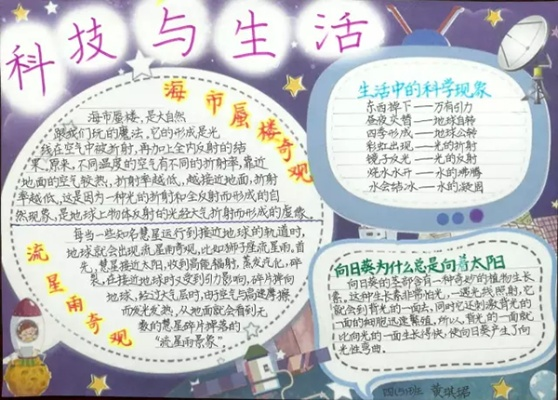 科技与生活
海市蜃楼奇观
海市蜃楼，是大自然
跟我们玩的魔法，它的形成是光
线在空气中被折射，再加上全内反射的结
果。原来，不同温度的空气有不同的折射率，靠近
地面的空气较热，折射率越低，越接近地面，折射
率越低，这是因为一种光的折射和全反射而形成的自
然现象，是地球上物体反射的光经大气折射而形成的虚像
流星雨奇观
每当一些知名彗星运行到接近地球的轨道时，
地球就会出现流星雨奇观，比如狮子座流星雨，首
先，彗星接近太阳，收到高能辐射，蒸发汽化，碎
裂，在接近地球时又受到引力影响，碎片撞向
地球，经过大气层时，由于空气与高速摩擦
而发光发热，从地面就会看到无
数的彗星碎片掉落的
“流星雨景象”
生活中的科学现象
东西掉下——万有引力
昼夜交替——地球自转
四季形成——地球公转
彩虹出现——光的折射
镜子发光——光的反射
烧水水开——水的沸腾
水会结冰——水的凝固
向日葵为什么总是向着太阳
向日葵的茎部含有一种奇妙的植物生长
素。这种生长素非常怕光。一遇光线照射，它
就会到背光的一面去，同时它还刺激背光的
一面的细胞迅速繁殖，所以，背光的一面就
比向光的一面生长得快，使向日葵产生了向
光性弯曲。